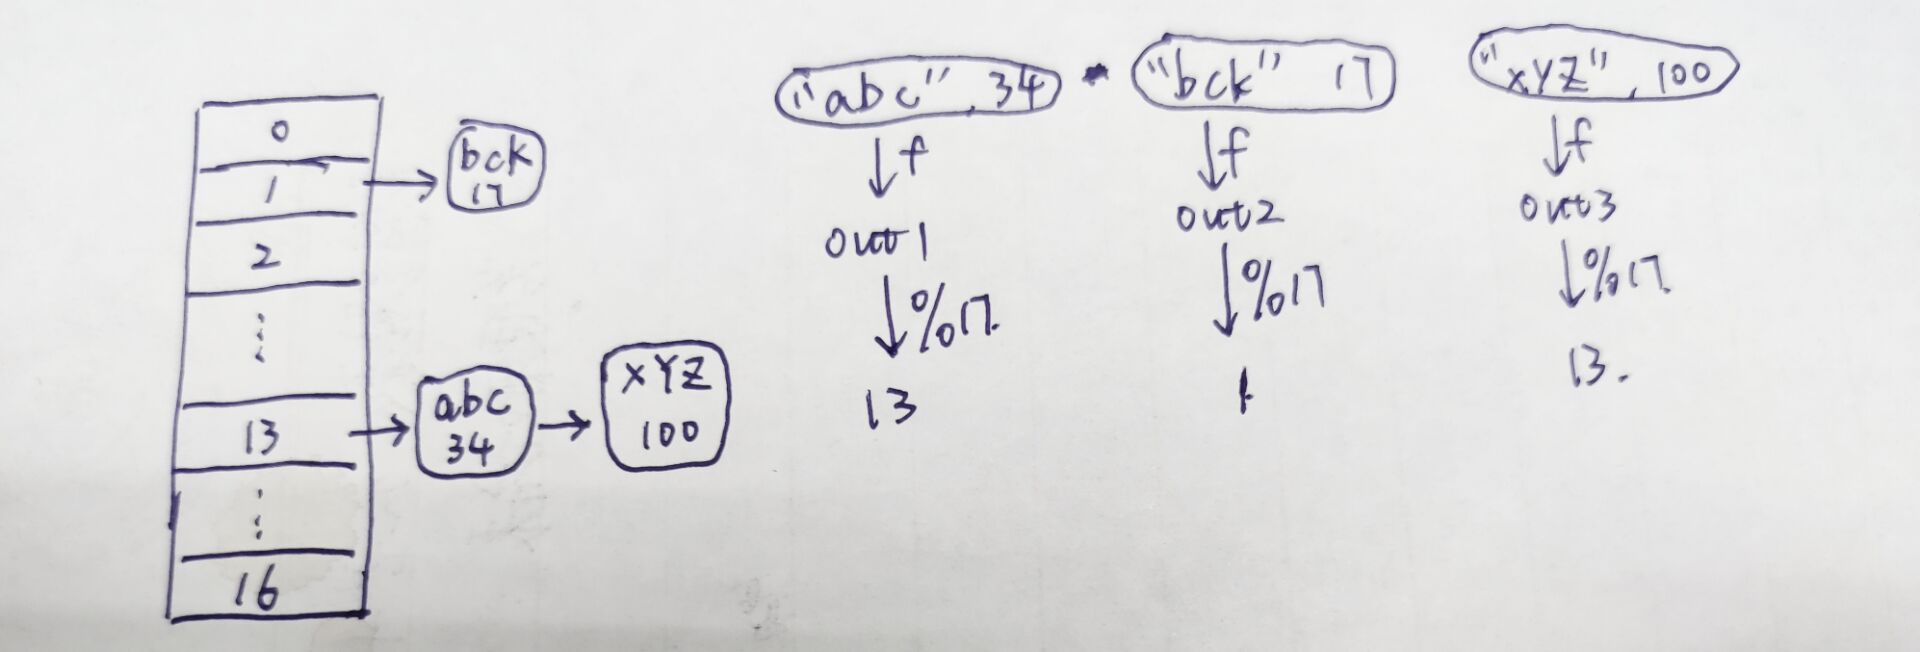 0
1
2
⋮
13
⋮
16
bck
17
abc
34
xYZ
100
"abc", 34
f
out1
%17.
13
"bck" 17
f
out2
%17
1
"xYZ", 100
f
out3
%17.
13.